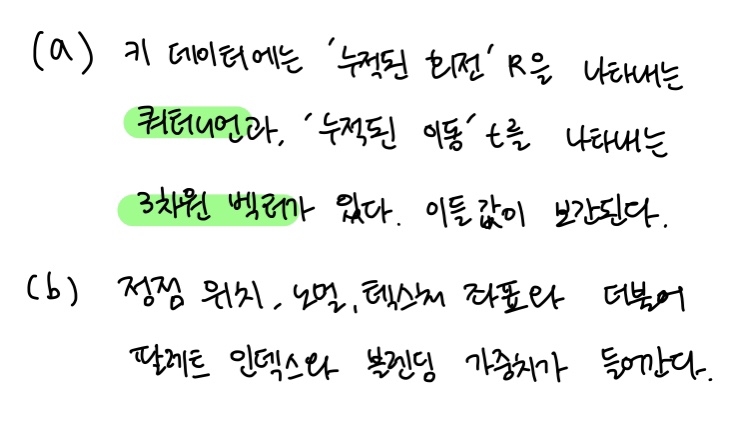 (a) 키 데이터에는 '누적된 회전' R을 나타내는
쿼터니언과, '누적된 이동' t를 나타내는
3차원 벡터가 있다. 이들 값이 보간된다.
(b) 정점 위치, 노멀, 텍스처 좌표와 더불어
팔레트 인덱스와 블렌딩 가중치가 들어간다.